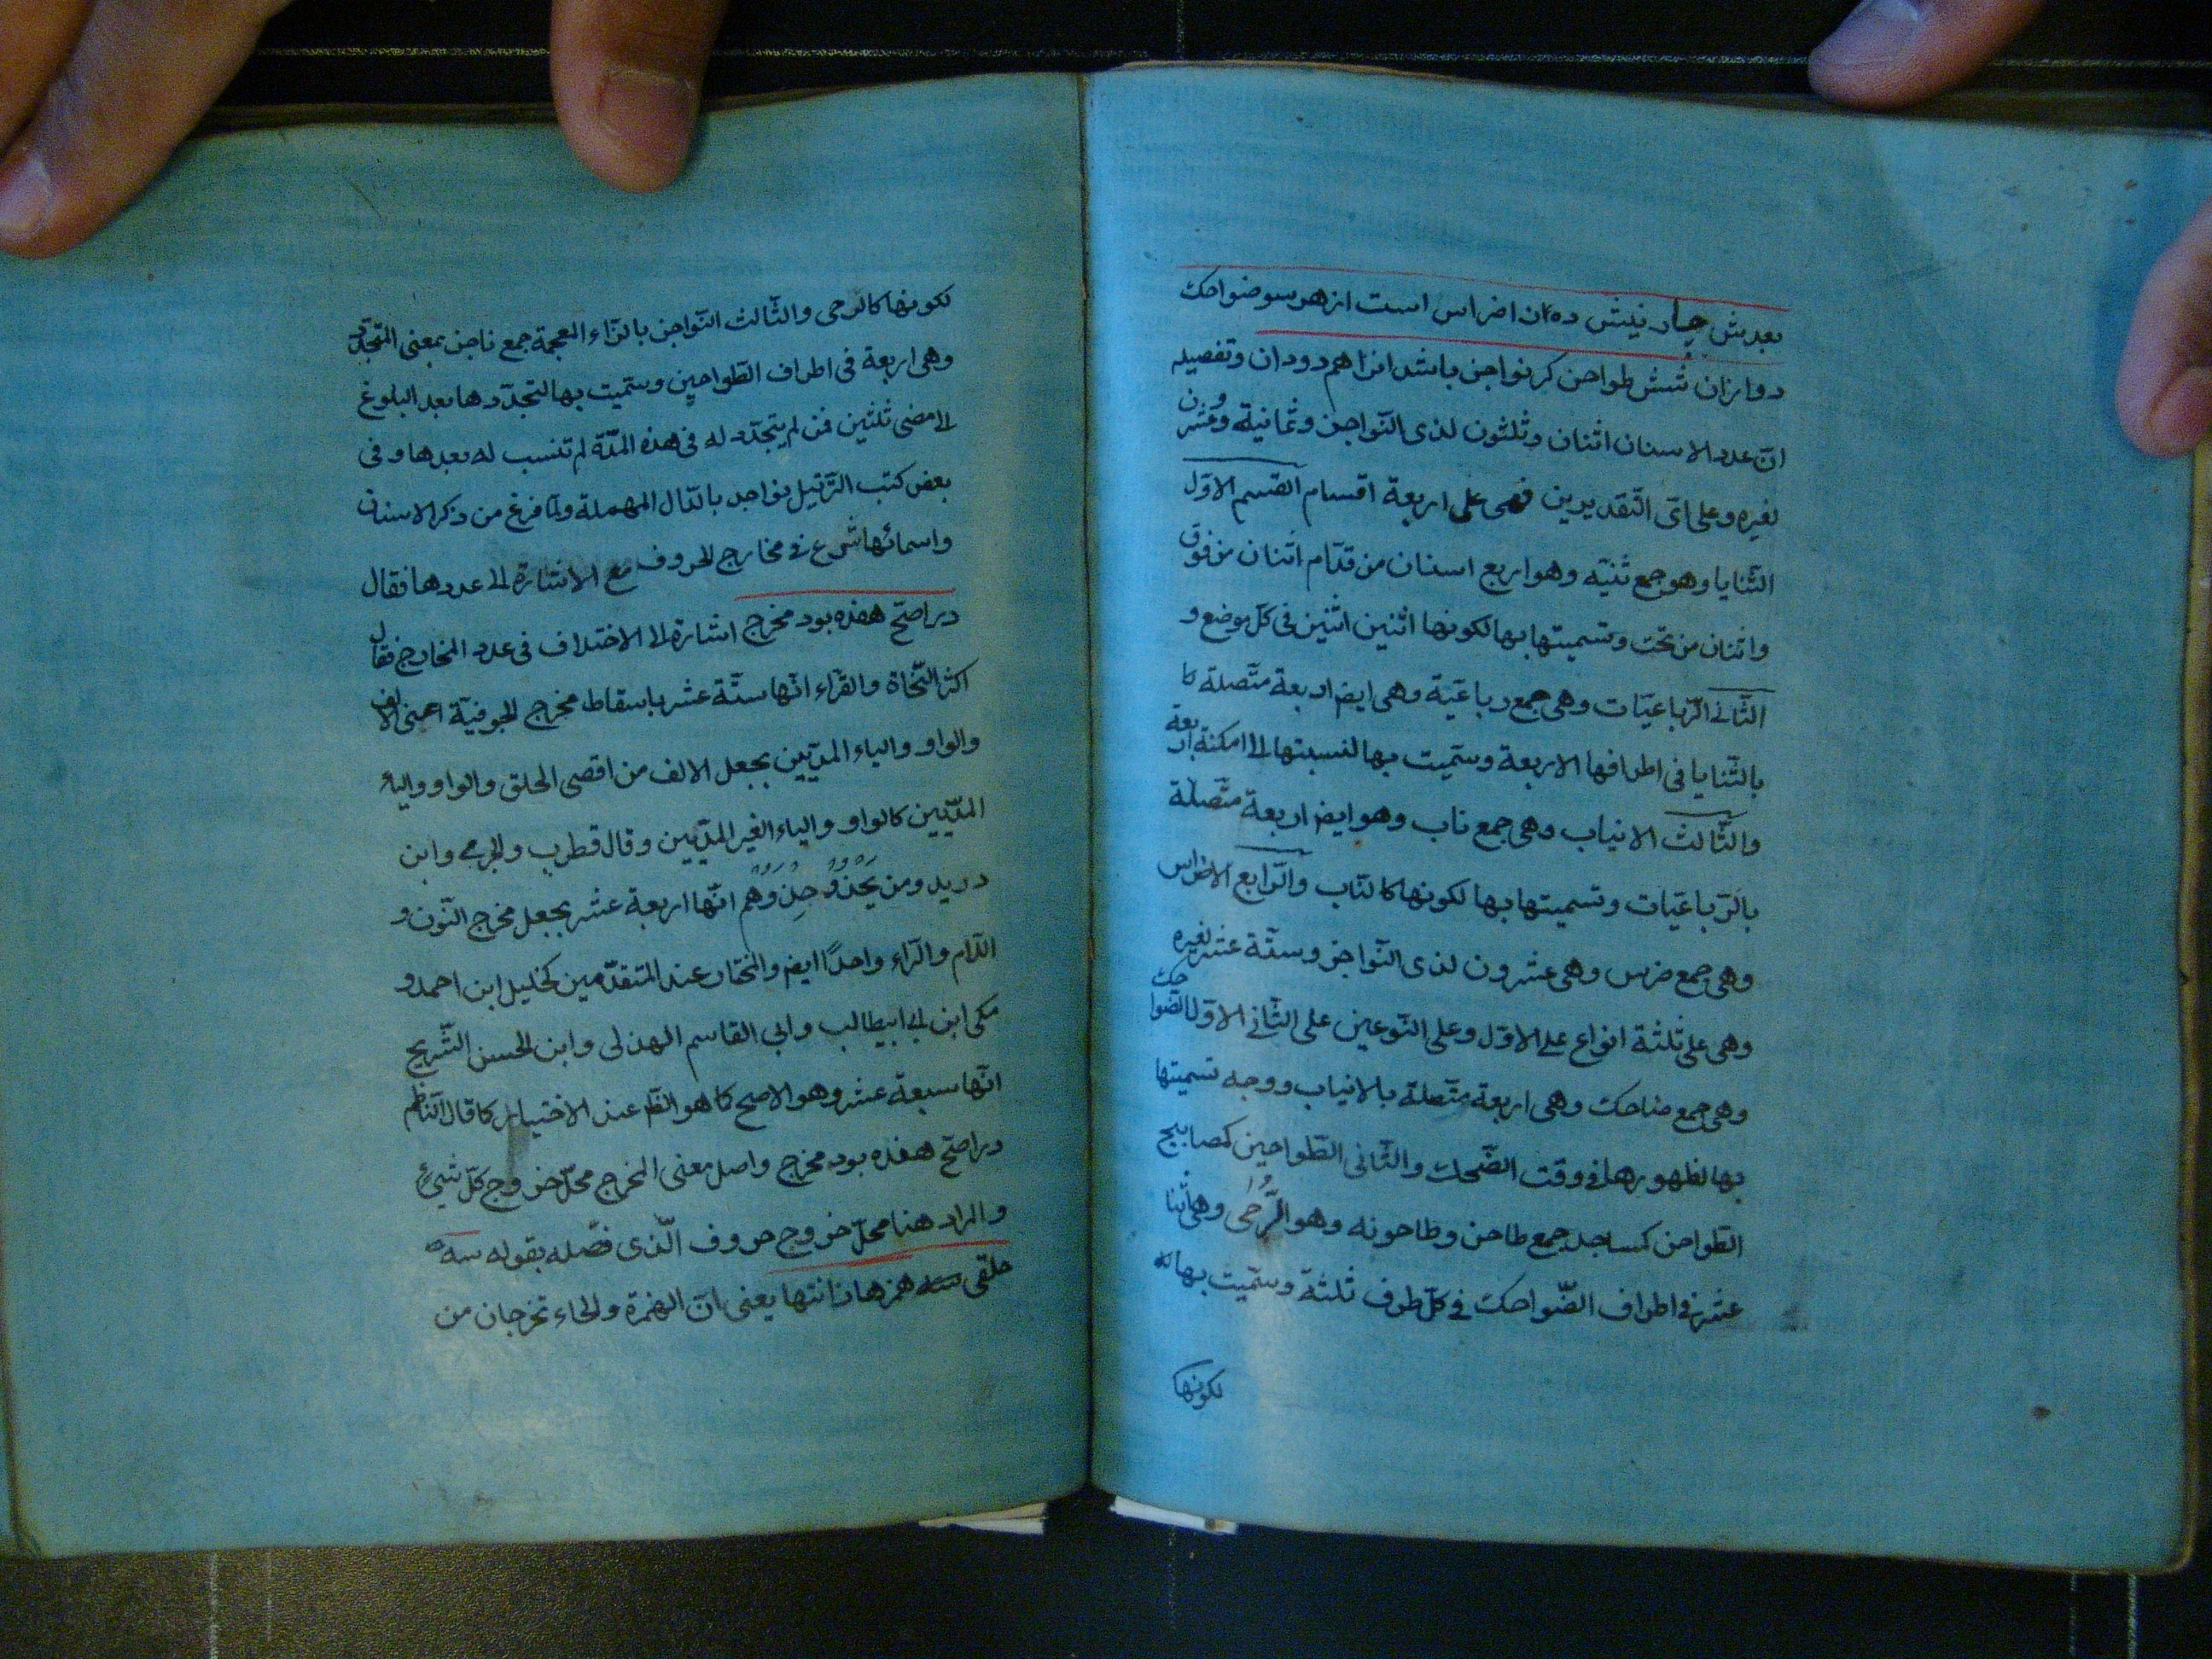 بعدش چهار نیش ده ان اضراس است از هر سو ضواحك
دو ازان شش طواحن كر نواجن باشد انرا هم دودان وتفصیله
انّ عدد الاسنان اثنان وثلثون لذى النّواجن وثمانية وعشرون
لغيره وعلى اىّ التّقديرين فهى على اربعة اقسام القسم الاوّل
الثّنايا وهو جمع ثنيّه وهو اربع اسنان من قدّام اثنان من فوق
واثنان من تحت وتسميتها بها لكونها اثنين اثنين فى كلّ موضع و
الثّانى الرّباعيّات وهى جمع رباعيّة وهى ايض اربعة متّصلة كا
بالثّنايا فى اطرافها الاربعة وسمّيت بها لنسبتها الى امكنة اربعة
والثّالث الانياب وهى جمع ناب وهو ايض اربعة متّصلة
بالرّباعيّات وتسميتها بها لكونها كالنّاب والرّابع الاضراس
وهى جمع ضرس وهى عشرون لذى النّواجن وستّة عشر لغيره
وهى على ثلثة انواع على الاوّل وعلى النّوعين على الثّانى الاوّل الضّواحك
وهى جمع ضاحك وهى اربعة متّصلة بالانياب ووجه تسميتها
بها لظهورها فى وقت الضّحك والثّانى الطّواحين كمصابيح
الطّواحن كمساجد جمع طاحن وطاحونه وهو الرَّحٰى وهى اثنا
عشر فى اطراف الضّواحك فى كلّ طرف ثلثة وسمّيت بها
لكونها
لكونها كالرحى والثّالث النّواجن بالزّاء المعجمة جمع ناجن بمعنى المتجدّد
وهى اربعة فى اطراف الطّواحين وسمّيت بها لتجدّدها بعد البلوغ
الى مضى ثلثين فمن لم يتجدّد له فى هذه المدّة لم تنسب له بعدها وفى
بعض كتب التّرتيل نواجد بالدّال المهملة ولمّا فرغ من ذكر الاسنان
واسمائها شرع فى مخارج الحروف مع الاشارة الى عددها فقال
در اصحّ هفده بود مخرج اشارة الى الاختلاف فى عدد المخارج فقال
اكثر النّحاة والقرّاء انّها ستّة عشر باسقاط مخرج الجوفيّة اعنى الالف
والواو والياء المدّيّين بجعل الالف من اقصى الحلق والواو والياء
المدّيّين كالواو والياء الغير المدّيّين وقال قطرب والجرمى وابن
دريد ومن يَحْذُو حَذْوَهُم انّها اربعة عشر بجعل مخرج النّون و
اللّام والرّاء واحدًا ايض والمختار عند المتقدّمين كخليل ابن احمد و
مكى ابن ابى ابيطالب وابى القاسم الهذلى وابن الحسن الشّريح
انّها سبعة عشر وهو الاصح كا هو الظّ عند الاختيار كا قال النّاظم
در اصحّ هفده بود مخرج واصل معنى المخرج محلّ خروج كلّ شىء
والمراد هنا محلّ خروج حروف الّذى فصّله بقوله سه
حلقى همزها زانتها يعنى انّ الهمزة والحاء تخرجان من